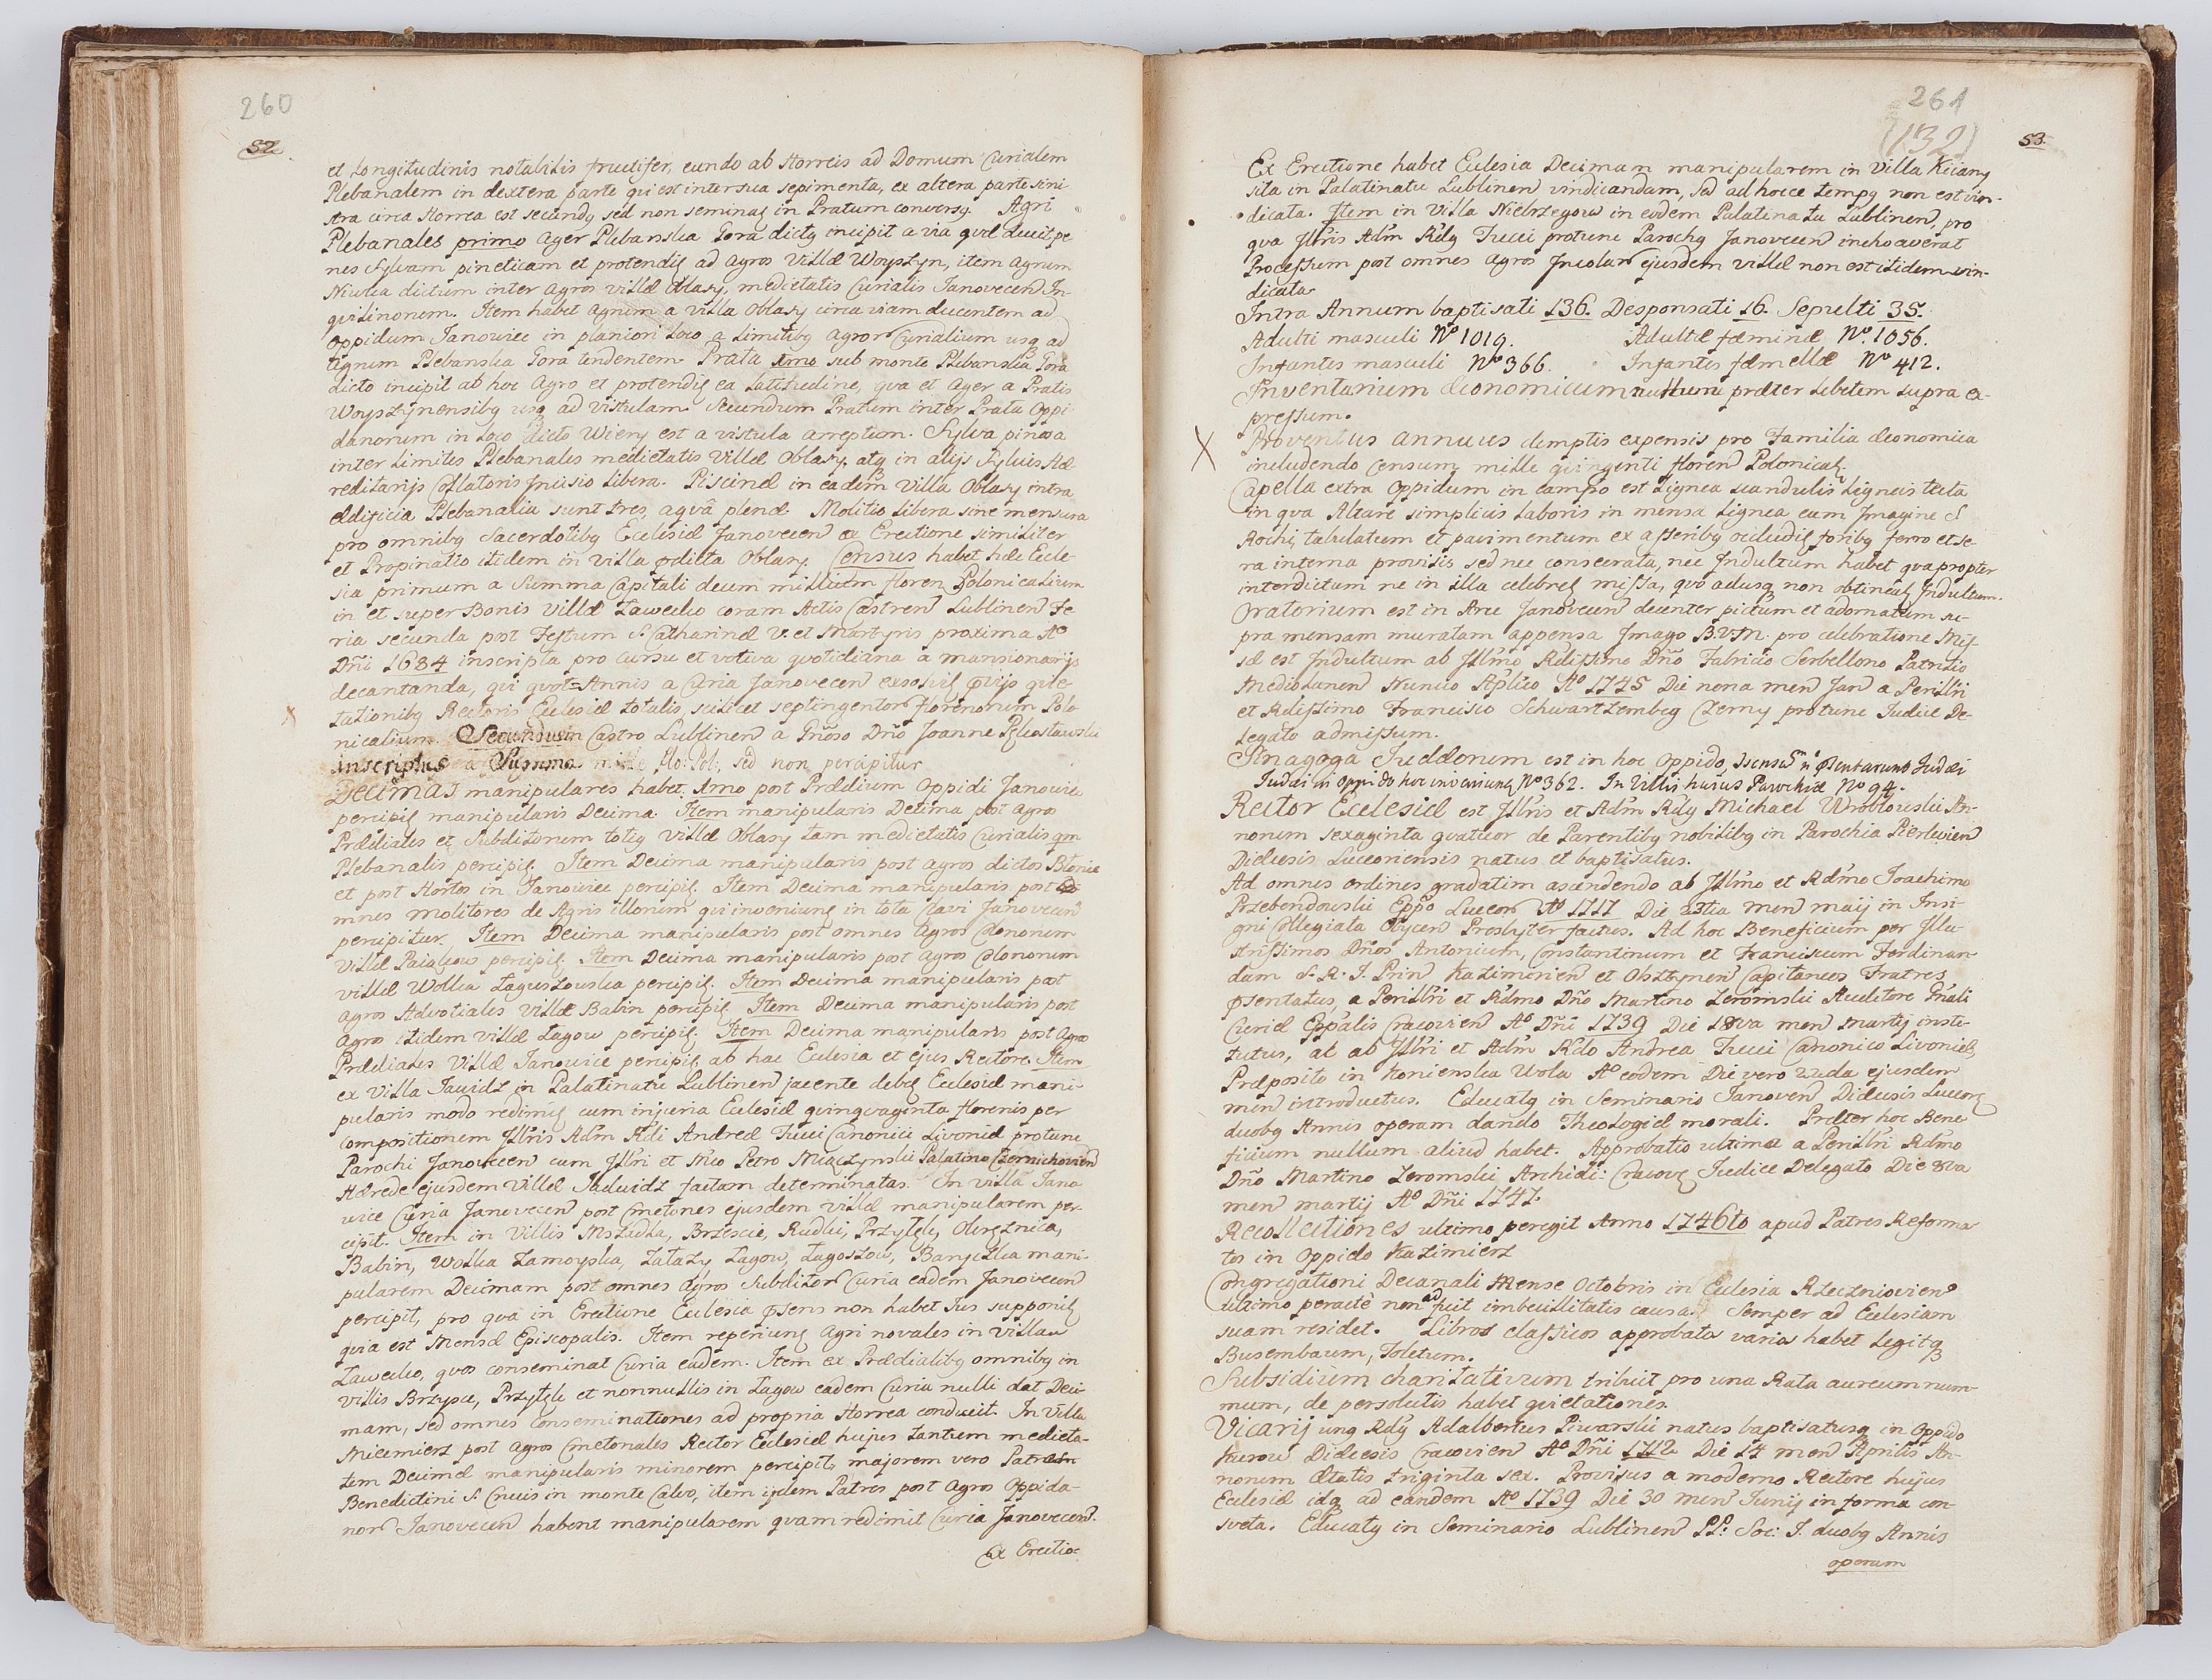 260
52.
et Longitudinis notabilis fructifer, eundo ab Horreis ad Domum Curialem
Plebanalem in dextera parte qui est inter sua sepimenta, ex altera parte sini
stra circa Horrea est secundq sed non seminaꝫ in Pratum conversq. Agri
Plebanales primo Ager Plebanska Gora dictq incipit a via qvæ ducit pe
nes Sylvam pineticam et protendiꝫ ad Agros Villæ Woyszyn, item Agrum
Niwka dictum inter Agros villæ Oblasy, medietatis Curialis Janovecen In-
qvilinorum. Item habet Agrum a villa Oblasy circa viam ducentem ad
Oppidum Janowiec in planiori Loco a Limitibq Agror Curialium usq ad
Agrum Plebanska Gora tendentem. Prata 1mo sub monte Plebanska Gora
dicto incipit ab hoc Agro et protendiꝫ ea Latitudine, qva et Ager a Pratis
Woyszynensibq usq ad Vistulam. Secundum Pratum inter Prata Oppi
danorum in Loco dicto Wieny est a vistula arreptum. Sylva pinosa
inter Limites Plebanales medietatis Villæ Oblasy, atq in alijs Sylvis Hæ-
reditarijs Collatoris Incisio Libera. Piscinæ in eadem Villa Oblasy intra
ædificia Plebanalia sunt tres, aqvâ plenæ. Molitio Libera sine mensura
pro omnibq Sacerdotibq Ecclesiæ Janovecen ex Erectione similiter
et Propinatio itidem in villa pdicta Oblasy. Census habet hæc Eccle-
sia primum a Summa Capitali decem millium floren Polonicalium
in et super Bonis Villæ Zawecko coram Actis Castren Lublinen Fe
ria secunda post Festum S. Catharinæ V. et Martyris proxima Aº
Dñi 1684 inscripta pro cursu et votiva qvotidiana a mansionarijs
decantanda, qvi qvot=Annis a Curia Janovecen exsolviꝫ pvijs qvie-
tationibq Rectoris Ecclesiæ totalis, scilicet septingentor florenorum Polo
nicalium. Secundus in Castro Lublinen a Gnoso Dño Joanne
inscriptus a Summa mille flo: Pol: sed non percipitur
Decimas manipulares habet. 1mo post Prædium Oppidi Janowiec
percipiꝫ manipularis Decima. Item manipularis Decima post Agros
Prædiales et Subditorum totiq Villæ Oblasy tam medietatis Curialis qm
Plebanalis percipiꝫ. Item Decima manipularis post Agros dictos Blonie
et post Hortos in Janowiec percipiꝫ. Item Decima manipularis post o-
mnes Molitores de Agris illorum qvi inveniunꝫ in tota Clavi Janovecen
percipitur. Item Decima manipularis post omnes Agros Colonorum
Villæ Paiakow percipiꝫ. Item Decima manipularis post Agros Colonorum
villæ Wolka Laguszowska percipiꝫ. Item Decima manipularis post
Agros Advotiales Villæ Babin percipiꝫ Item Decima manipularis post
Agros itidem villæ Lagow percipiꝫ. Item Decima manipularis post Agros
Prædiales Villæ Janowice percipiꝫ ab hac Ecclesia et ejus Rectore. Item
ex Villa Jawidz in Palatinatu Lublinen jacente debeꝫ Ecclesiæ mani-
pularis modo redimiꝫ cum injuria Ecclesiæ qvinqvaginta florenis per
Compositionem Jllris Adm Rdi Andreæ Tucci Canonici Livoniæ protunc
Parochi Janovecen cum Jllri et Mco Petro Miączynski Palatino Czernichovien
Hærede ejusdem Villæ Jadwidz factam determinatas. In villa Jano
wice Curia Janovecen post Cmetones ejusdem villæ manipularem per-
cipit. Item in Villis Mszadla, Brzescie, Rudki, Przylęk, Okręznica,
Babin, Wolka Zamoyska, Zalazy Lagow, Lagoszow, Baryczka mani-
pularem Decimam post omnes Agros Subditor Curia eadem Janovecen
percipit, pro qva in Erectione Ecclesia psens non habet Jus supponiꝫ
qvia est Mensæ Episcopalis. Item reperiunꝫ Agri novales in Villa
Zawecko, qvos conseminat Curia eadem. Item ex Prædialibq omnibq in
villis Brzysce, Przylęk et nonnullis in Lagow eadem Curia nulli dat Deci-
mam, sed omnes conseminationes ad propria Horrea conducit. In Villa
Niciemierz post Agros Cmetonales Rector Ecclesiæ hujus tantum medieta-
tem Decimæ manipularis minorem percipit, majorem vero Patres
Benedictini S. Crucis in monte Calvo, item ijdem Patres post Agros Oppida-
nor Janovecen habent manipularem qvam redimit Curia Janovecen.
Ex Erectio=
261
(132)
53.
Ex Erectione habet Ecclesia Decimam manipularem in Villa Kiiany
sita in Palatinatu Lublinen vindicandam, sed ad hocce tempq non est vin-
dicata. Item in Villa Niebrzegow in eodem Palatinatu Lublinen, pro
qva Jllris Adm Rdq Tucci protunc Parochq Janovecen inchoaverat
Processum post omnes Agros Incolar ejusdem villæ non est itidem vin-
dicata.
Intra Annum baptisati 136. Desponsati 16. Sepulti 35.
Adulti masculi Nº 1019. Adultæ fæminæ Nº. 1056.
Infantes masculi Nº 366. Infantes fæmellæ Nº 412.
Inventarium œconomicum nullum præter Libetem supra ex-
pressum.
X
Proventus annuus demptis expensis pro Familia œconomica
includendo Censum, mille qvingenti floren Polonicaꝫ.
Capella extra Oppidum in campo est Lignea scandulis Ligneis tecta
in qva Altare simplicis Laboris in mensa Lignea cum Imagine S
Rochi, tabulatum et pavimentum ex asseribq occludiꝫ foribq ferro et se-
ra interna provisis sed nec consecrata, nec Indultum habet qvapropter
interdictum ne in illa celebreꝫ missa, qvo adusq non obtineaꝫ Indultum.
Oratorium est in Arce Janovecen decenter pictum et adornatum su-
pra mensam muratam appensa Imago B.V.M. pro celebratione Mis-
sæ est Indultum ab Jllmo Rdissimo Dño Fabricio Serbellono Patritio
Mediolanen Nuncio Aplico Aº 1745 Die nona men Jan a Perillri
et Rdissimo Francisco Schwartzembeg Czerny protunc Judice De-
legato admissum.
Sinagoga Judæorum est in hoc Oppido, Iscensū ñ psentarunt Judæi
Judæi in Oppido hoc inveniunꝫ Nº 362. In Villis hujus Parochiæ Nº 94.
Rector Ecclesiæ est Jllris et Adm Rdq Michael Wroblowski An-
norum sexaginta qvatuor de Parentibq nobilibq in Parochia Pierlevien
Diœcesis Luceoriensis natus et baptisatus.
Ad omnes ordines gradatim ascendendo ab Jllmo et Rdmo Joachimo
Przebendowski Eppo Luceor Aº 1717 Die 23tia men maij in Insi-
gni Collegiata Olycen Presbyter factus. Ad hoc Beneficium per Illu
strissimos Dños Antonium, Constantinum et Franciscum Ferdinan
dum S. R. I. Prin Kazimirien et Olsztynen Capitaneos Fratres
psentatus, a Perillri et Rdmo Dño Martino Zeromski Auditore Gnali
Curiæ Eppalis Cracovien Aº Dñi 1739 Die 18va men Martij insti-
tutus, at ab Jllri et Adm Rdo Andrea Tucci Canonico Livoniæ,
Præposito in Konienska Wola Aº eodem Die vero 22da ejusdem
men introductus. Educatq in Seminario Janoven Diœcesis Luceorꝫ
duobq Annis operam dando Theologiæ morali. Præter hoc Bene
ficium nullum aliud habet. Approbatio ultima a Perillri Rdmo
Dño Martino Zeromski, Archidi: Cracovꝫ Judice Delegato Die 8va
men martij Aº Dñi 1747.
Recollectiones ultimo peregit Anno 1746to apud Patres Reforma
tos in Oppido Kazimierz
Congregationi Decanali Mense Octobris in Ecclesia Rzeczniovien
ultimo peractæ non adfuit imbecillitatis causa. Semper ad Ecclesiam
suam residet. Libros classicos approbatos varios habet Legitq
Busembaum, Toletum.
Subsidium charitativum tribuit pro una Rata aureum num-
mum, de persolutis habet qvietationes.
Vicarij unq Rdq Adalbertus Piwarski natus baptisatusq in Oppido
Kurow Diœcesis Cracovien Aº Dñi 1712 Die 14 men Aprilis An-
norum Ætatis triginta sex. Provisus a moderno Rectore hujus
Ecclesiæ idq ad eandem Aº 1739 Die 30 men Junij in forma con-
sveta. Educatq in Seminario Lublinen PP: Soc: J. duobq Annis
operam